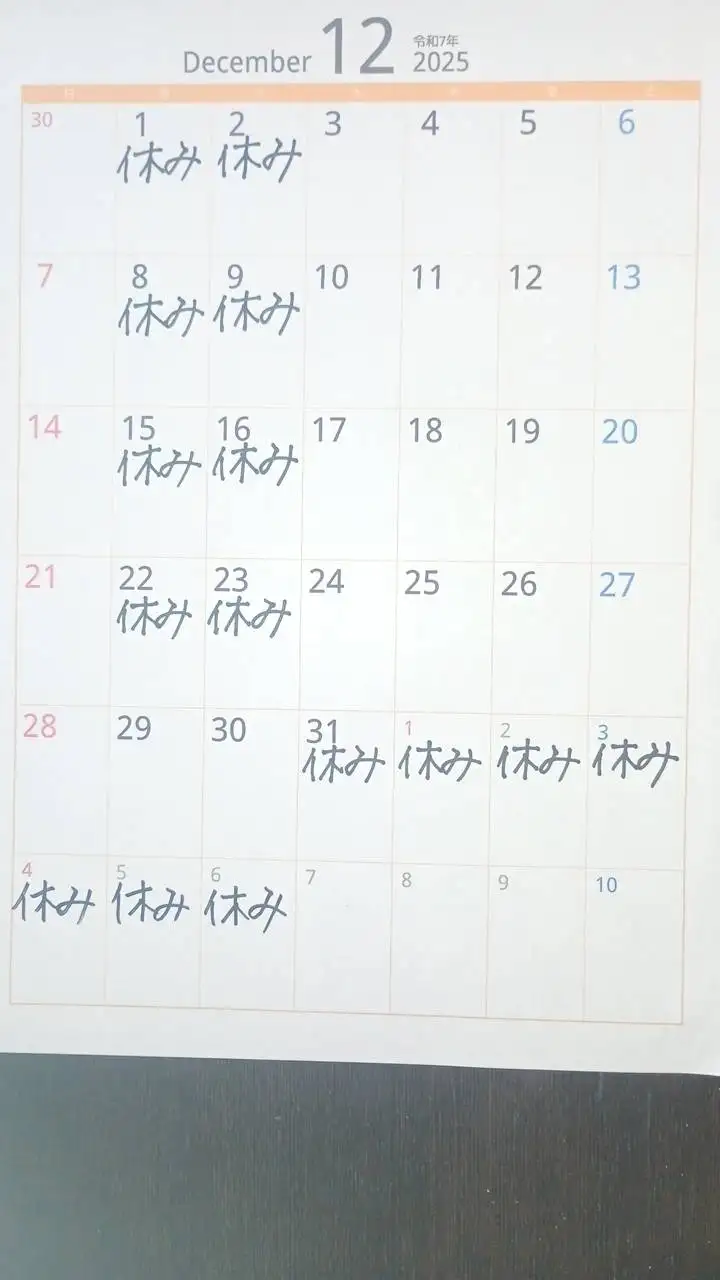 December 12 令和7年 2025
30 1 2 3 4 5 6
休み 休み
7 8 9 10 11 12 13
休み 休み
14 15 16 17 18 19 20
休み 休み
21 22 23 24 25 26 27
休み 休み
28 29 30 31 1 2 3
休み 休み 休み 休み
4 5 6 7 8 9 10
休み 休み 休み